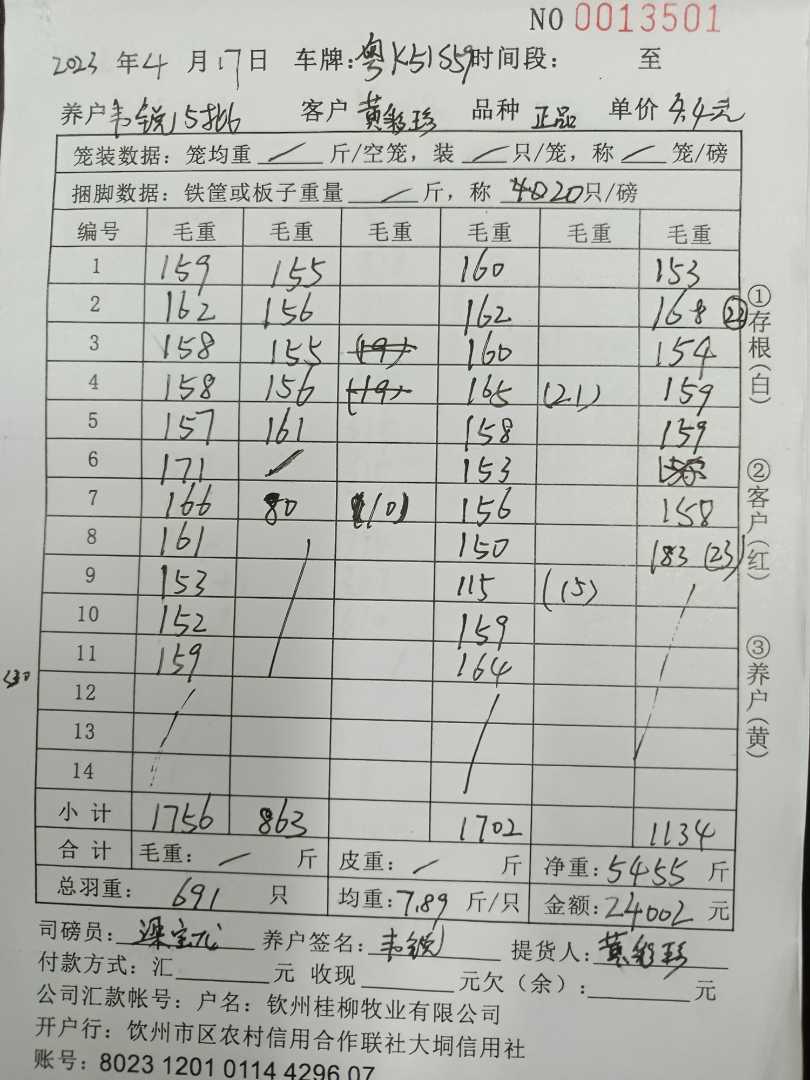 NO 0013501
2023 年 4 月 17 日 车牌: 粤K51S59 时间段: 至
养户 韦锐15批 客户 黄彩珍 品种 正品 单价 4.4元
笼装数据: 笼均重 / 斤/空笼, 装 / 只/笼, 称 / 笼/磅
捆脚数据: 铁筐或板子重量 / 斤, 称 20 只/磅
编号 毛重 毛重 毛重 毛重 毛重 毛重
1 159 155 160 153
2 162 156 162 168 (22)
3 158 155 (19) 160 154
4 158 156 (19) 165 (21) 159
5 157 161 158 159
6 171 / 153
7 166 80 (10) 156 158
8 161 150 183 (23)
9 153 115 (15)
10 152 159
11 159 164
12
13
14
小计 1756 863 1702 1134
合计 毛重: / 斤 皮重: / 斤 净重: 5455 斤
总羽重: 691 只 均重: 7.89 斤/只 金额: 24002 元
司磅员: 梁宝龙 养户签名: 韦锐 提货人: 黄彩珍
付款方式: 汇 元 收现 元欠(余): 元
公司汇款帐号: 户名: 钦州桂柳牧业有限公司
开户行: 饮州市区农村信用合作联社大垌信用社
账号: 8023 1201 0114 4296 07
①存根(白)
②客户(红)
③养户(黄)